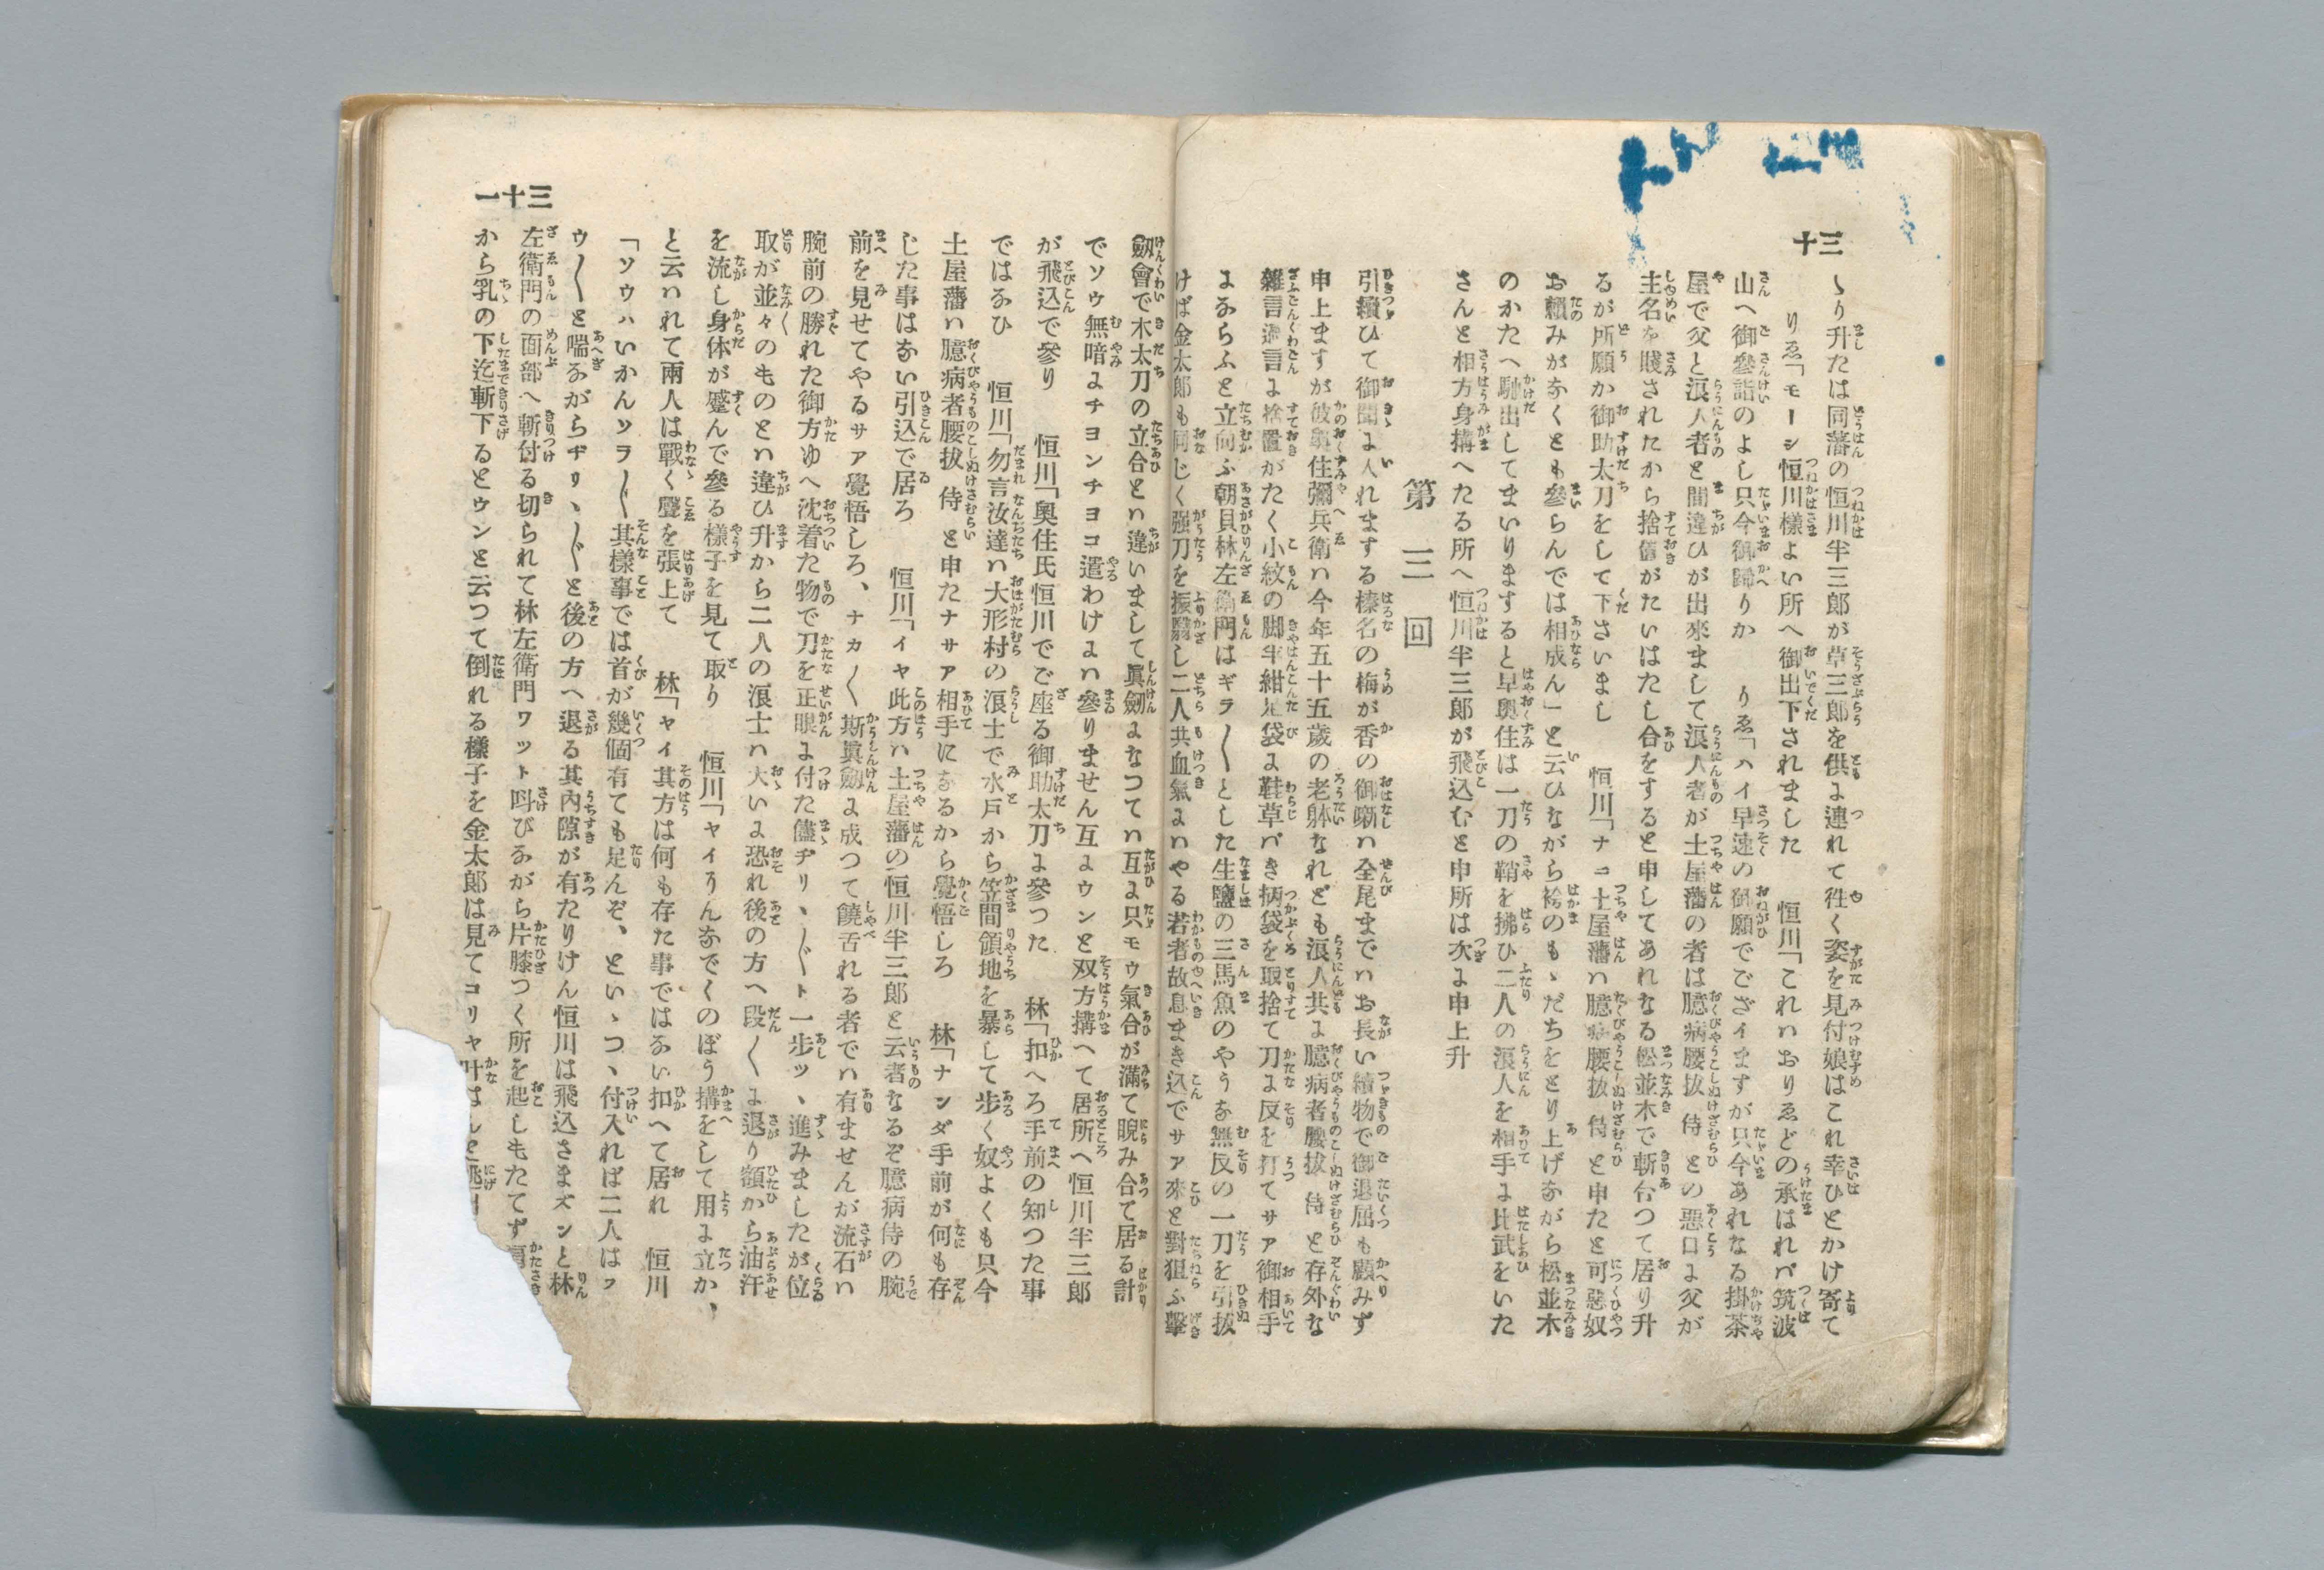 三十
ゝり升たは同藩の恒川半三郎が草三郎を供よ連れて徃く姿を見付娘はこれ幸ひとかけ寄て
りゑ「モーシ恒川様よい所へ御出下されました　恒川「これハおりゑどの承はれバ筑波
山へ御參詣のよし只今御歸りか　りゑ「ハイ早速の御願でござイますが只今あれなる掛茶
屋で父と浪人者と間違ひが出來まして浪人者が土屋藩の者は臆病腰抜侍との悪口よ父が
主名を賤されたから捨置がたいはたし合をすると申してあれなる松並木で斬合つて居り升
るが所願か御助太刀をして下さいまし　恒川「ナニ土屋藩ハ臆病腰抜侍と申たと可惡奴
お頼みがなくとも參らんでは相成ん」と云ひながら袴のもゝだちをとり上げながら松並木
のかたへ馳出してまいりまするど早奥住は一刀の鞘を拂ひ二人の浪人を相手よ比武をいた
さんと相方身搆へたる所へ恒川半三郎が飛込むと申所は次よ申上升
第三回
引續ひて御聞よ入れまする榛名の梅が香の御噺ハ全尾までハお長い續物で御退屈も顧みず
申上ますが彼奥住彌兵衛ハ今年五十五歳の老躰なれども浪人共よ臆病者腰抜侍と存外な
雜言過言よ捨置がたく小紋の脚半紺足袋よ鞋草バき柄袋を取捨て刀よ反を打てサア御相手
よならふと立向ふ朝貝林左衛門はギラ〳〵とした生鹽の三馬魚のやうな無反の一刀を引抜
けば金太郎も同じく强刀を振翳し二人共血氣よハやる若者故息まき込でサア來と對狙ふ擊
劔會で木太刀の立合とハ違いまして眞劔よなつてハ互よ只モウ氣合が滿て睨み合て居る計
でソウ無暗よチヨンチヨコ遣わけよハ參りません互ようンと双方搆へて居所へ恒川半三郎
が飛込で參り　恒川「奥住氏恒川でご座る御助太刀よ參つた　林「扣へろ手前の知つた事
ではなひ　恒川「勿言汝達ハ大形村の浪士で水戸から笠間領地を暴して歩く奴よくも只今
土屋藩ハ臆病者腰抜侍と申たナサア相手になるから覺悟しろ　林「ナンダ手前が何も存
じた事はない引込で居ろ　恒川「イヤ此方ハ土屋藩の恒川半三郎と云者なるぞ臆病侍の腕
前を見せてやるサア覺悟しろ、ナカ〳〵斯眞劔よ成つて饒舌れる者でハ有ませんが流石ハ
腕前の勝れた御方ゆへ沈着た物で刀を正眼よ付た儘ヂリ、〳〵ト一歩ッ、進みましたが位
取が並々のものとハ違ひ升から二人の浪士ハ大いよ恐れ後の方へ段〳〵よ退り額から油汗
を流し身体が蹙んで參る樣子を見て取り　恒川「ヤイうんなでくのぼう搆をして用よ立か、
と云ハれて兩人は戰く聲を張上て　林「ヤイ其方は何も存た事ではない扣へて居れ　恒川
「ソウハいかんソラ〳〵其様事では首が幾個有ても足んぞ、といゝつゝ付入れば二人はァ
ウ〳〵と喘ながらヂリ、〳〵と後の方へ退る其内隙が有たりけん恒川は飛込さまズンと林
左衛門の面部へ斬付る切られて林左衛門ワット呌びながら片膝つく所を起しもたてず肩
から乳の下迄斬下るとウンと云つて倒れる樣子を金太郎は見てコリヤ叶はんと逃
三十一